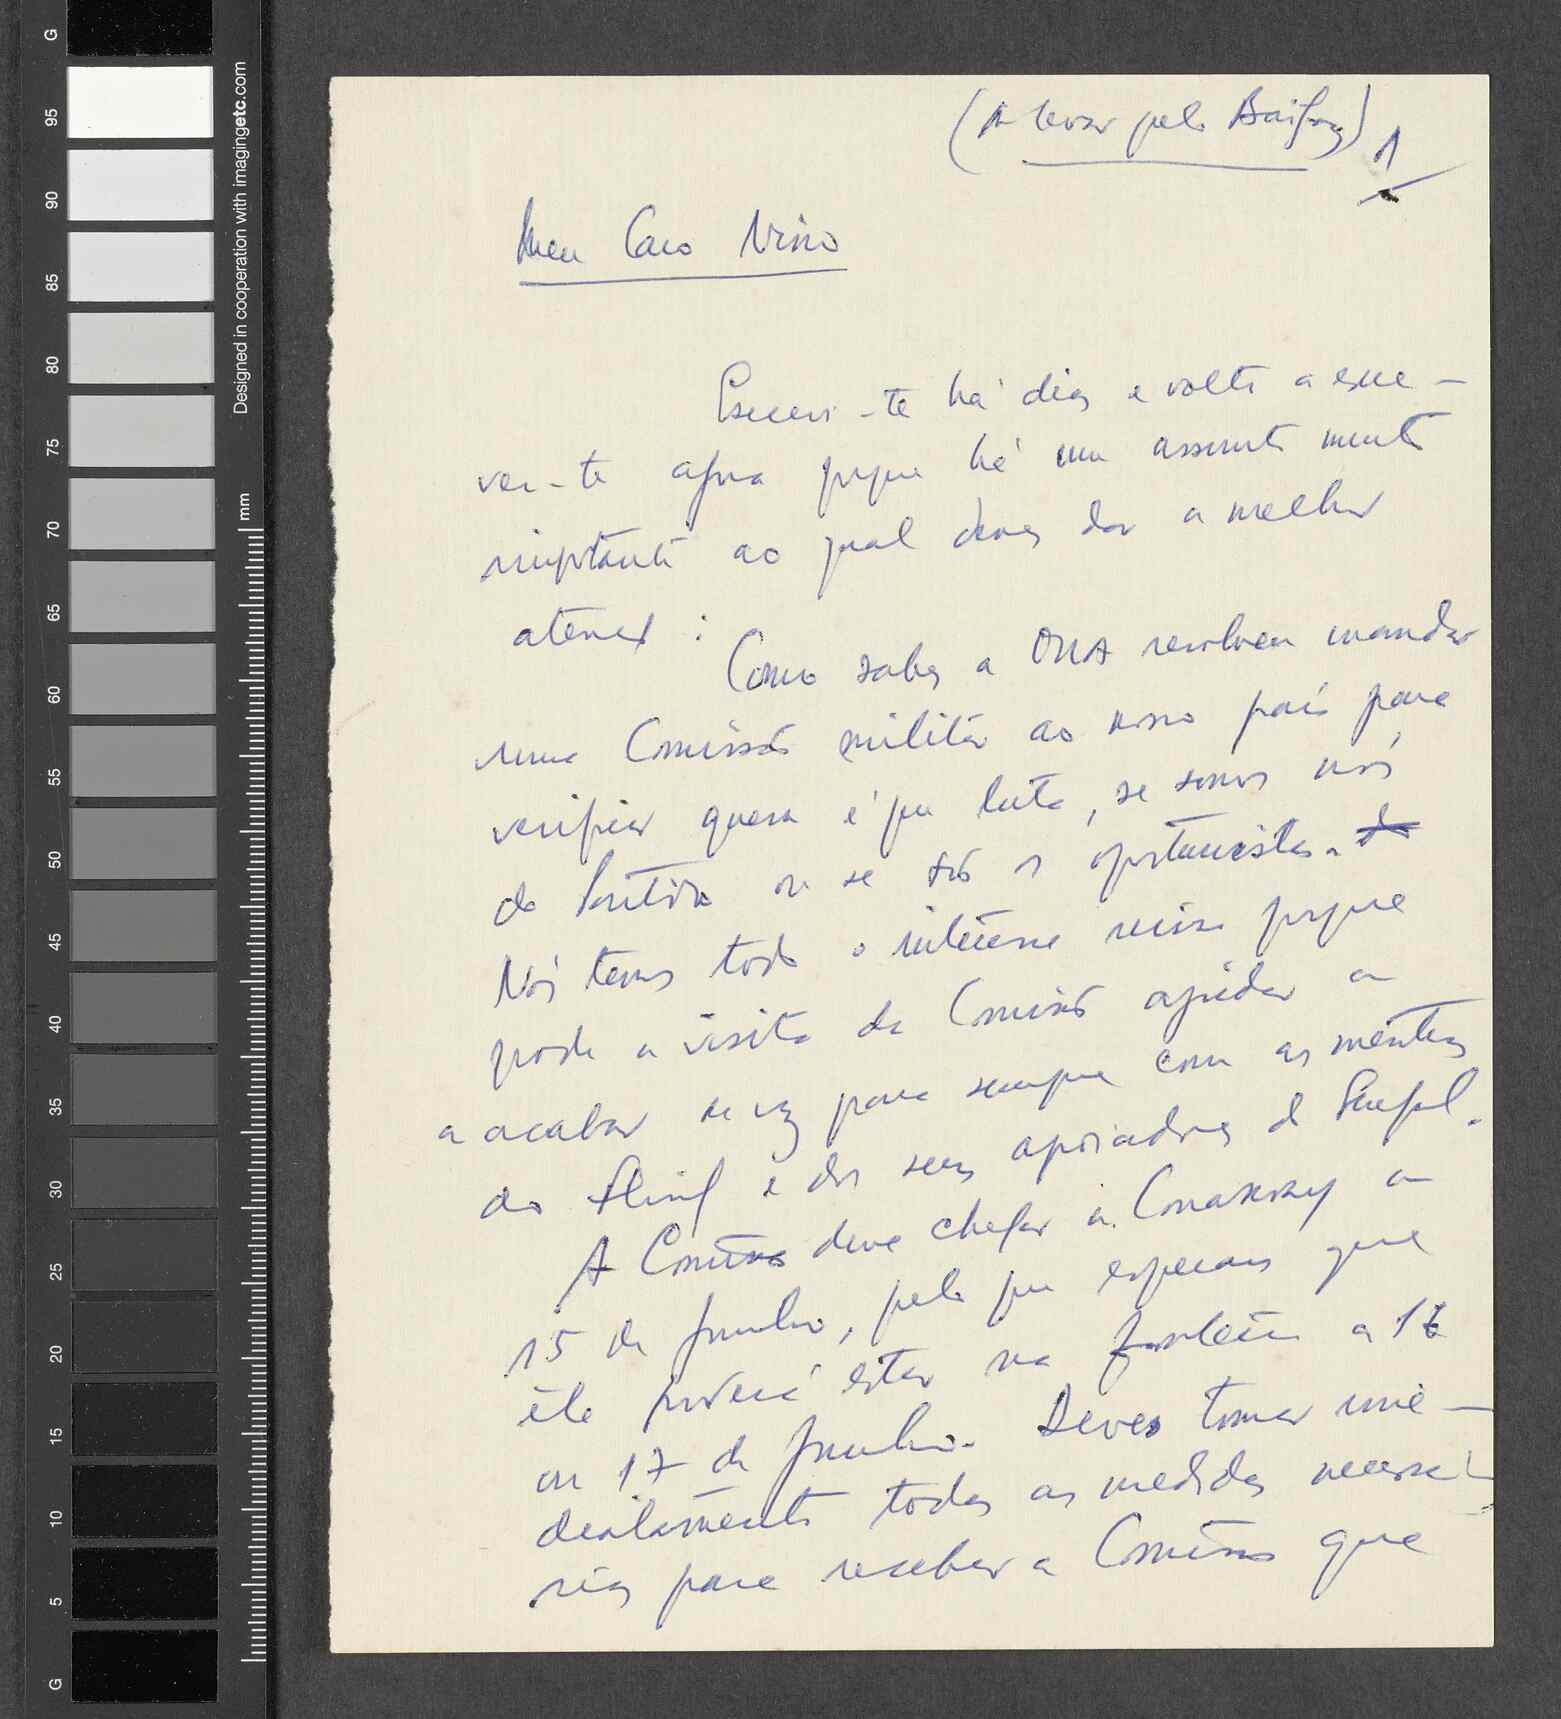 (A levar pelo Baifaz)
1
Meu Caro Nino
Escrevi-te há dias e volto a escre-
ver-te agora porque há um assunto muito
importante ao qual deves dar a melhor
atenção :
Como sabes a OUA resolveu mandar
uma Comissão militar ao nosso país para
verificar quem é que luta, se somos nós
do Partido ou se são os oportunistas.
Nós temos todo o interesse nisso porque
pode a visita da Comissão ajudar a
a acabar de vez para sempre com as mentiras
da Fling e dos seus apoiadores do Senegal.
A Comissão deve chegar a Conakry a
15 de Junho, pelo que esperamos que
ela poderá estar na fronteira a 16
ou 17 de Junho. Deves tomar ime-
diatamente todas as medidas necessá-
rias para receber a Comissão que
G
95
90
85
80
75
70
65
60
55
50
45
40
35
30
25
20
15
10
5
G
Designed in cooperation with imagingetc.com
mm